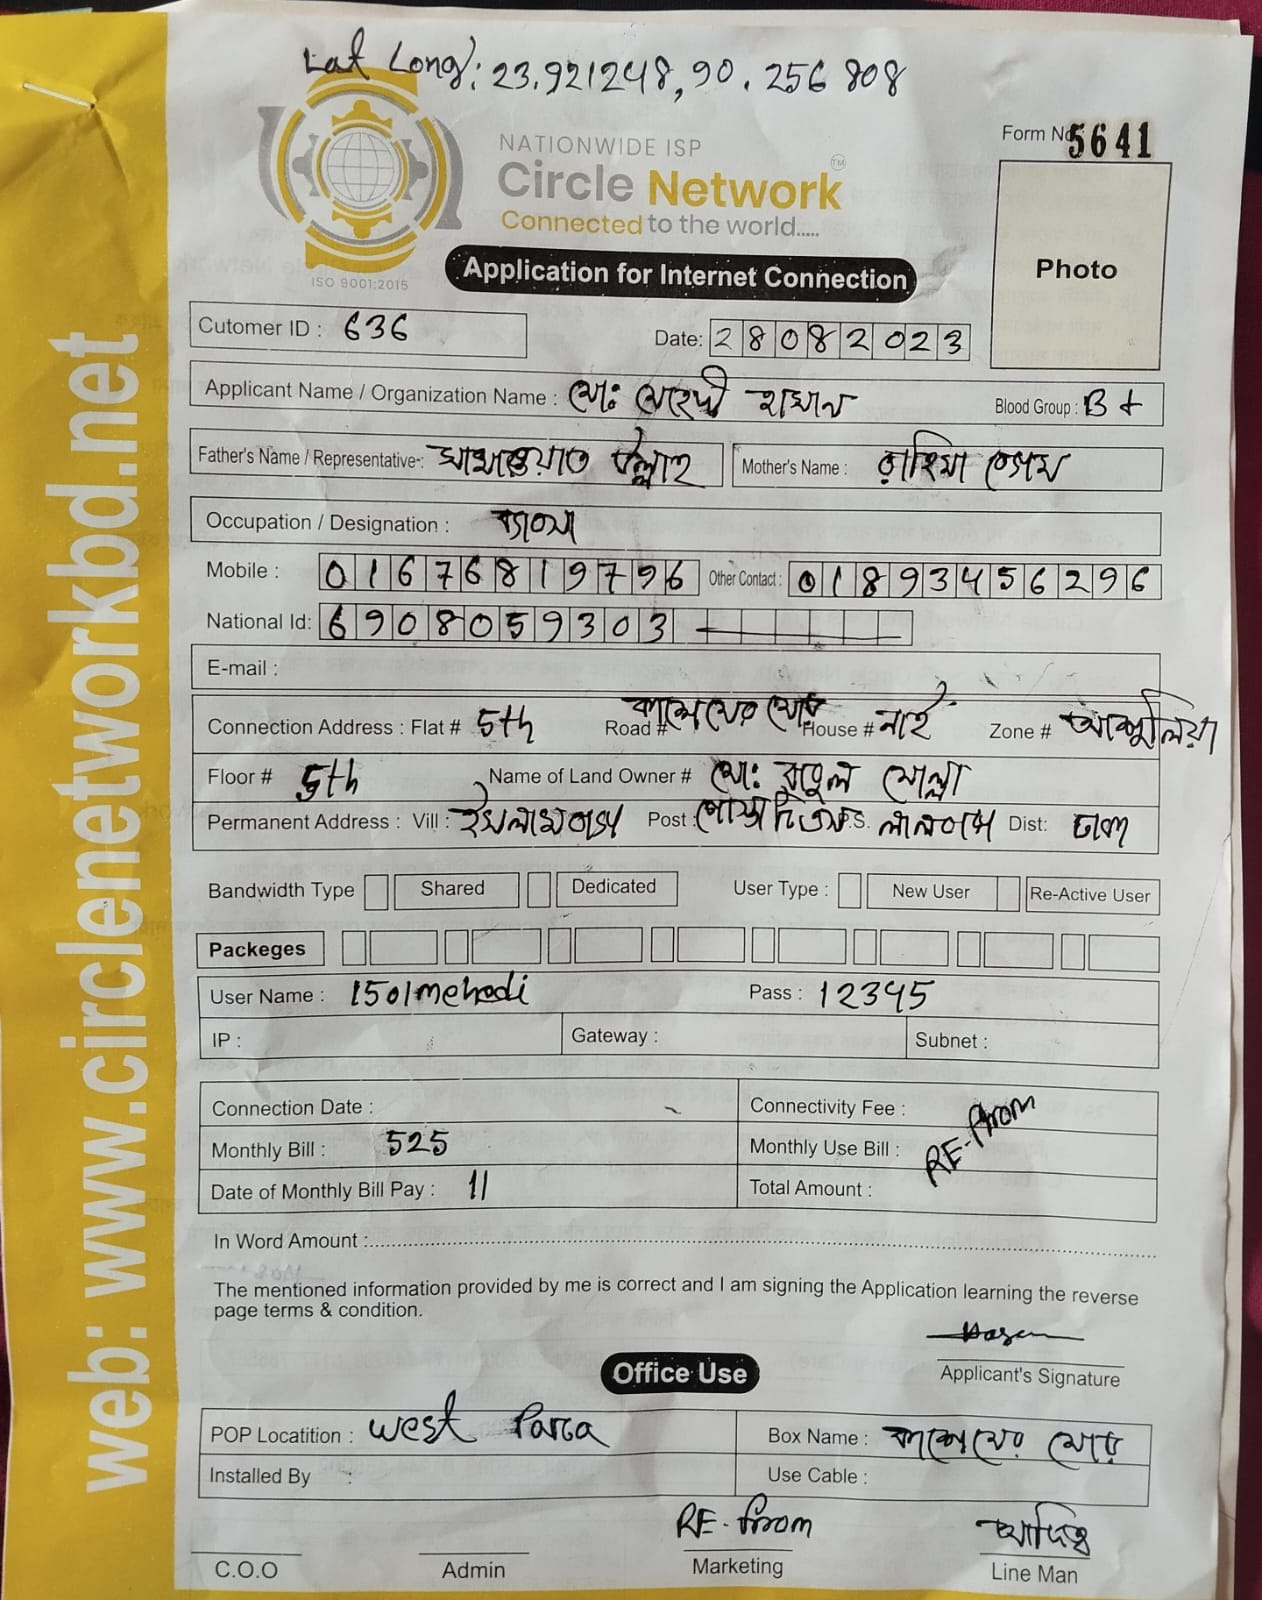 Lat Long: 23.921248, 90.256808
NATIONWIDE ISP
Circle Network TM
Connected to the world.....
ISO 9001:2015
Form No 5641
Photo
Application for Internet Connection
web: www.circlenetworkbd.net
Cutomer ID : 636 Date: 28082023
Applicant Name / Organization Name : মোঃ মেহেদী হাসান Blood Group : B+
Father's Name / Representative : উল্লাহ Mother's Name : রাহিমা বেগম
Occupation / Designation :
Mobile : 01676819796 Other Contact : 01893456296
National Id: 6908059303
E-mail :
Connection Address : Flat # 5th Road # কাশেমের মোড় House # নাই Zone # আশুলিয়া
Floor # 5th Name of Land Owner # মোঃ মোল্লা
Permanent Address : Vill : ইসলামবাগ Post : পোস্তা P.S. লালবাগ Dist: ঢাকা
Bandwidth Type Shared Dedicated User Type : New User Re-Active User
Packeges
User Name : 1501mehedi Pass : 12345
IP : Gateway : Subnet :
Connection Date : Connectivity Fee :
Monthly Bill : 525 Monthly Use Bill :
Date of Monthly Bill Pay : 11 Total Amount :
In Word Amount :
The mentioned information provided by me is correct and I am signing the Application learning the reverse
page terms & condition.
Hasan
Applicant's Signature
Office Use
POP Locatition : West Para Box Name : কাশেমের মোড়
Installed By : Use Cable :
C.O.O Admin Marketing Line Man